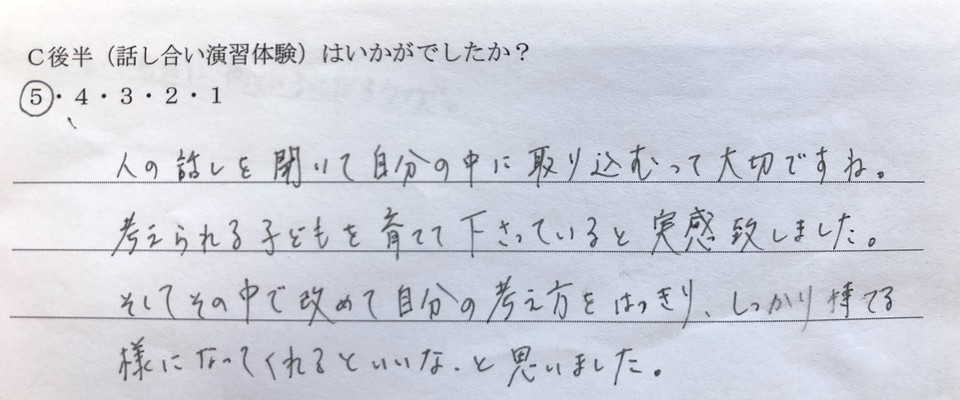 C後半（話し合い演習体験）はいかがでしたか？
5・4・3・2・1
人の話しを聞いて自分の中に取り込むって大切ですね。
考えられる子どもを育てて下さっていると実感致しました。
そしてその中で改めて自分の考え方をはっきり、しっかり持てる
様になってくれるといいな、と思いました。